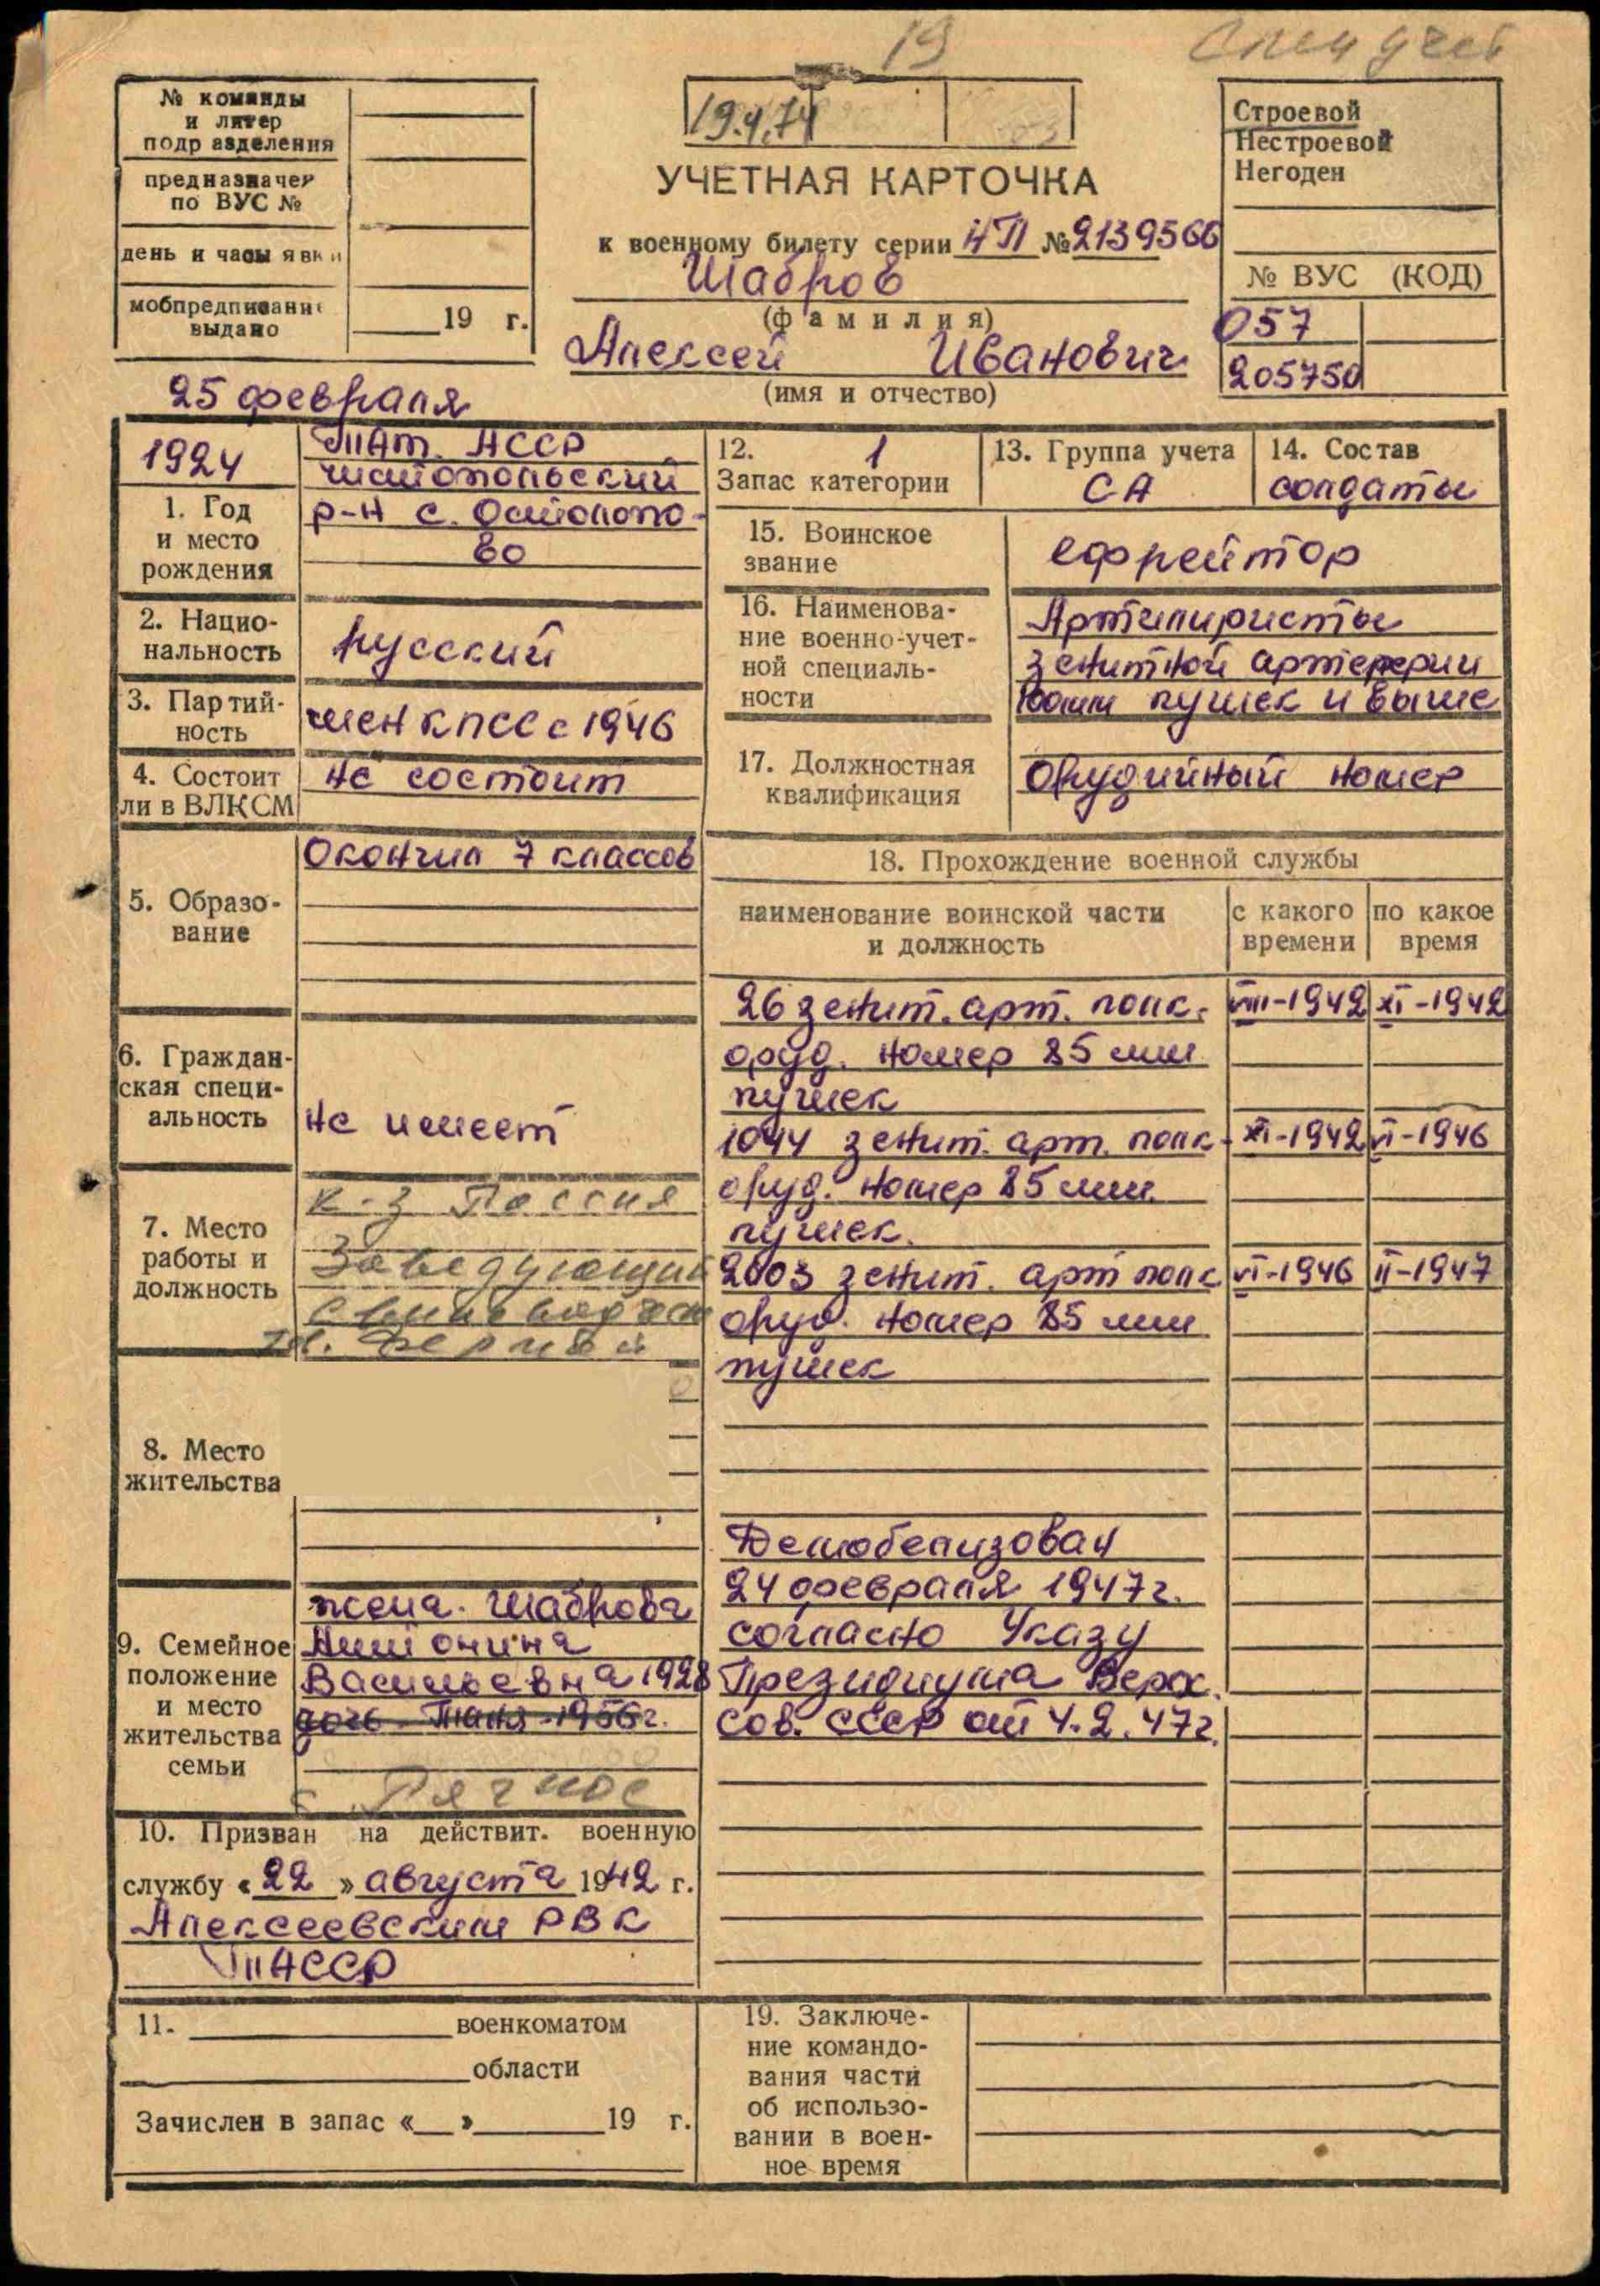 19
Спец учет
№ команды
и литер
подразделения
предназначен
по ВУС №
день и часы явки
мобпредписание
выдано
19 г.
19.4.74
УЧЕТНАЯ КАРТОЧКА
к военному билету серии НП № 2139566
Шабров
(фамилия)
Алексей Иванович
(имя и отчество)
Строевой
Нестроевой
Негоден
№ ВУС (КОД)
057
205750
25 февраля
1924
1. Год
и место
рождения
Тат. АССР
Чистопольский
р-н с. Остолопо-
во
2. Нацио-
нальность
русский
3. Партий-
ность
член КПСС с 1946
4. Состоит
ли в ВЛКСМ
не состоит
5. Образо-
вание
Окончил 7 классов
6. Граждан-
ская специ-
альность
не имеет
7. Место
работы и
должность
к-з Россия
Заведующий
свиноводческ
ферм
8. Место
жительства
9. Семейное
положение
и место
жительства
семьи
жена. Шаброва
Антонина
Васильевна 1928
дочь - Таня - 1956 г.
с. Речное
10. Призван на действит. военную
службу «22» августа 1942 г.
Алексеевским РВК
ТАССР
11. военкоматом
области
Зачислен в запас « » 19 г.
12. 1
Запас категории
13. Группа учета
СА
14. Состав
солдаты
15. Воинское
звание
ефрейтор
16. Наименова-
ние военно-учет-
ной специаль-
ности
Артилиристы
зенитной артерерии
100мм пушек и выше
17. Должностная
квалификация
Орудийный номер
18. Прохождение военной службы
наименование воинской части
и должность
с какого
времени
по какое
время
26 зенит. арт. полк. VIII-1942 XI-1942
оруд. номер 85 мм
пушек
1044 зенит. арт. полк- XI-1942 VI-1946
оруд. номер 85 мм.
пушек.
2003 зенит. арт полк VI-1946 II-1947
оруд. номер 85 мм
пушек
Демобелизован
24 февраля 1947 г.
согласно Указу
Президиума Верх.
Сов. СССР от 4.2.47 г.
19. Заключе-
ние командо-
вания части
об использо-
вании в воен-
ное время